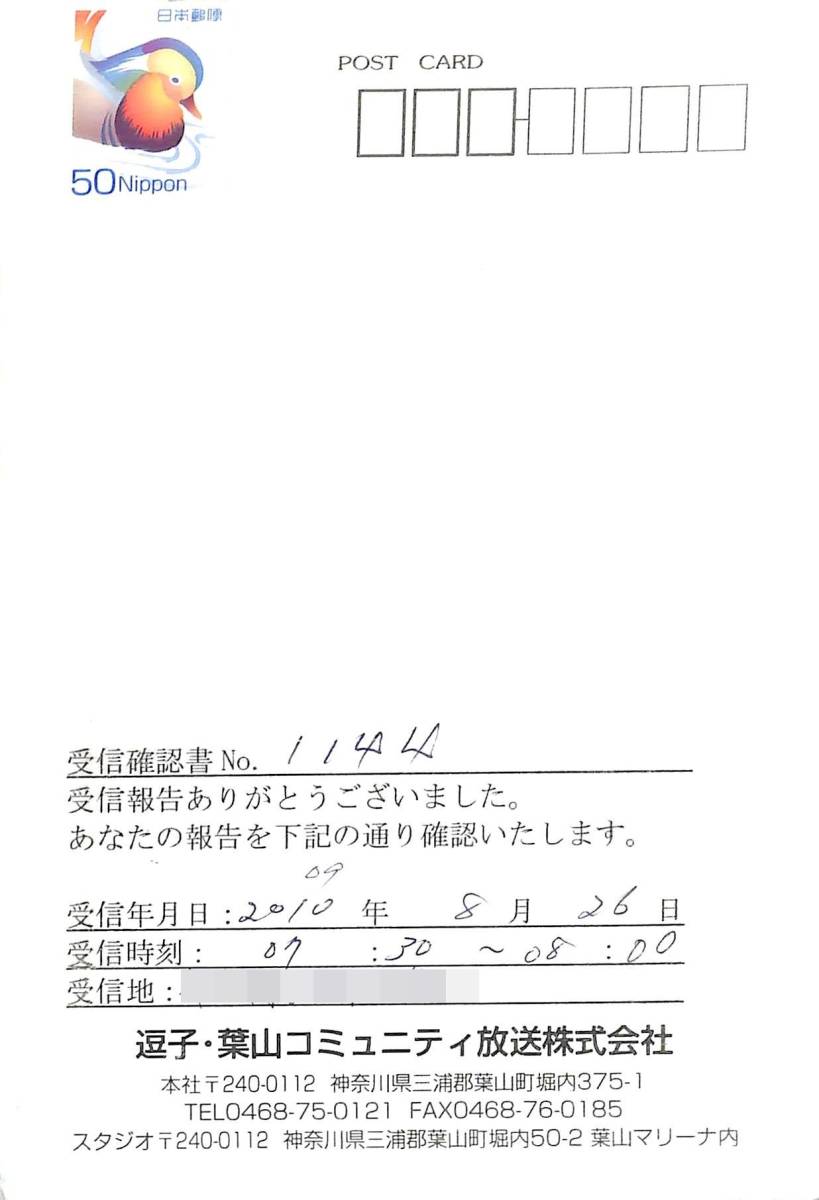 日本郵便
POST CARD
50 Nippon
受信確認書No. 1144
受信報告ありがとうございました。
あなたの報告を下記の通り確認いたします。
09
受信年月日:2010年 8月 26日
受信時刻: 07 :30 ～ 08 :00
受信地:
逗子・葉山コミュニティ放送株式会社
本社〒240-0112 神奈川県三浦郡葉山町堀内375-1
TEL0468-75-0121 FAX0468-76-0185
スタジオ〒240-0112 神奈川県三浦郡葉山町堀内50-2 葉山マリーナ内